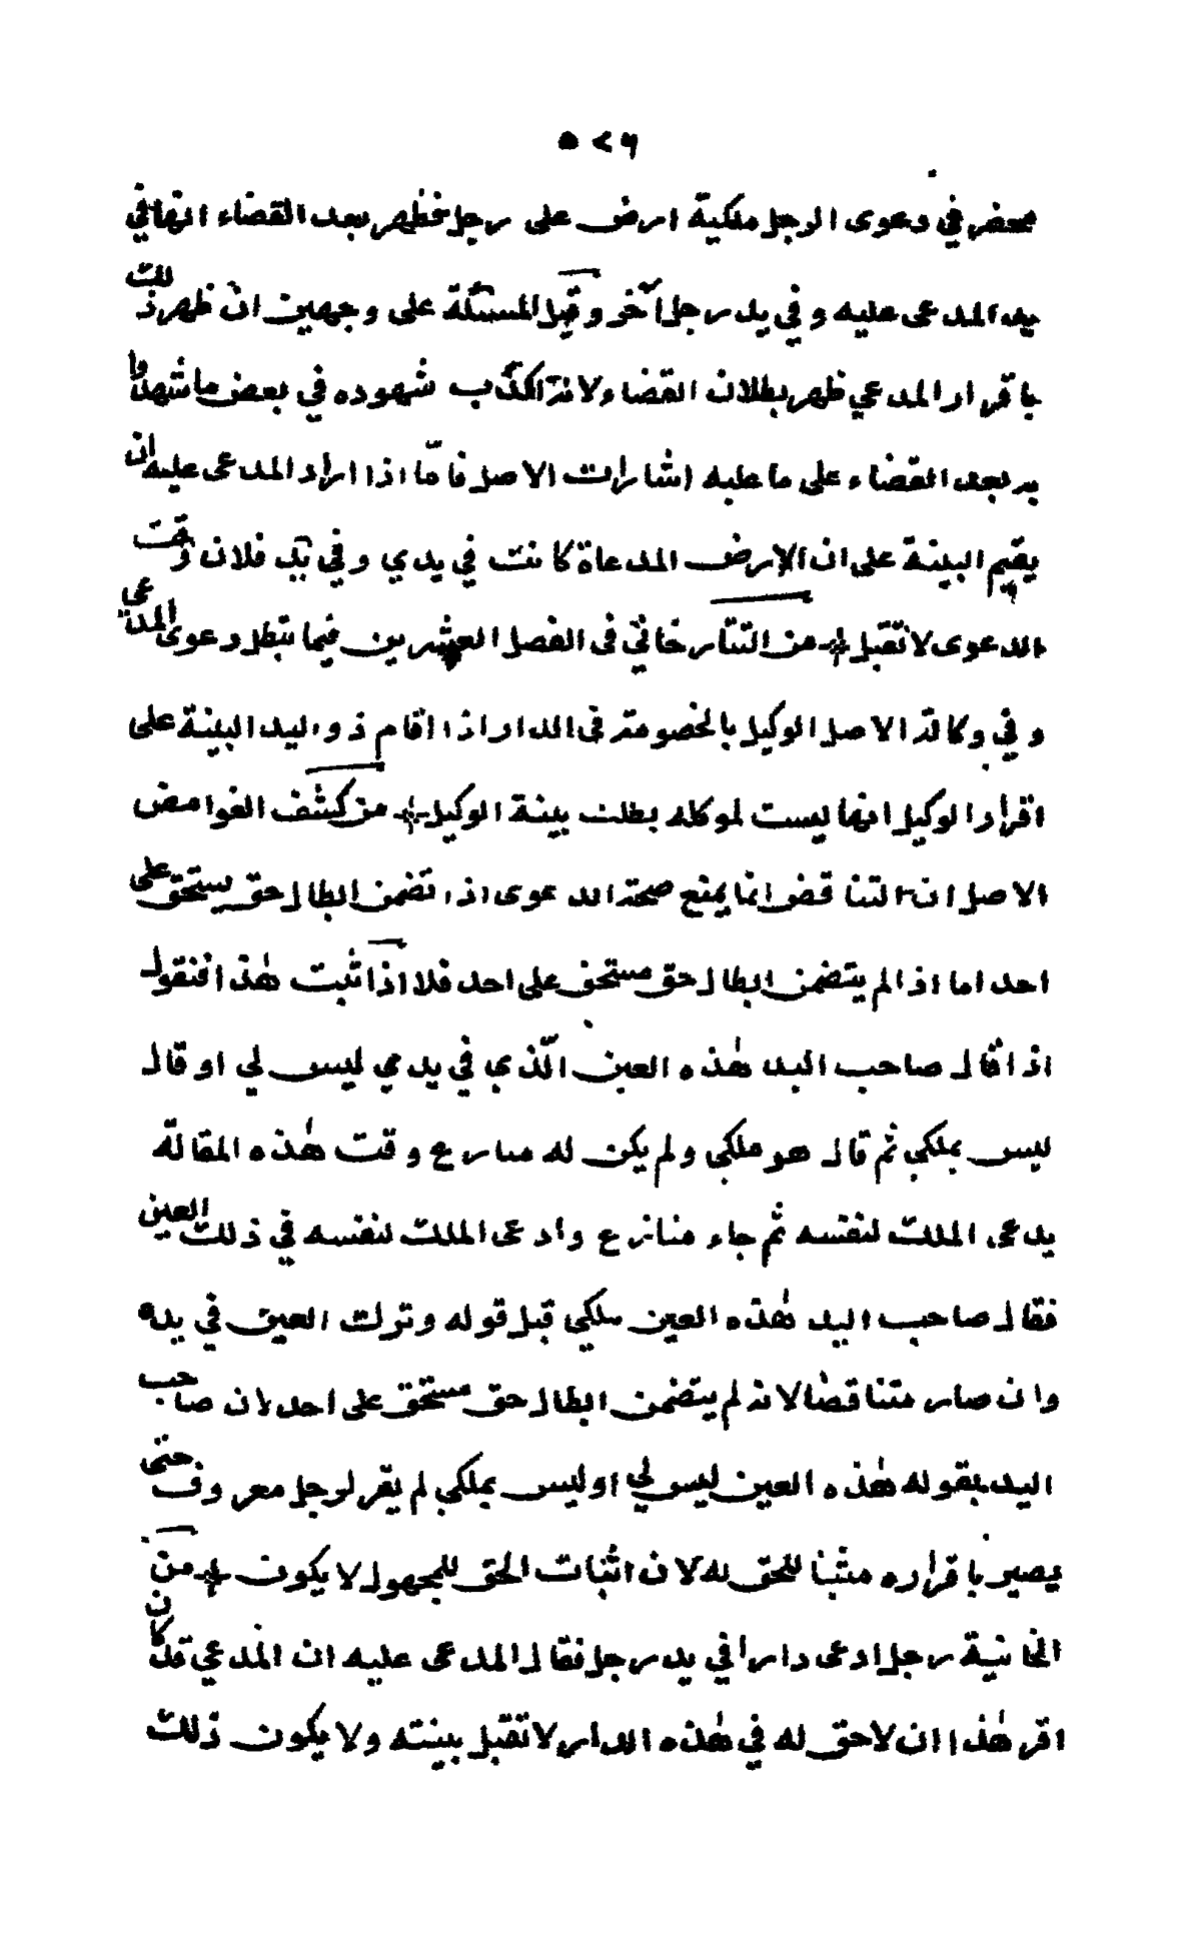 ٥٢٦
محضر في دعوى الرجل ملكية ارض على رجل فظهر بعد القضاء انها في
يد المدعى عليه وفي يد رجل آخر وقيل المسئلة على وجهين ان ظهر ذلك
باقرار المدعي ظهر بطلان القضاء لانه اكذب شهوده في بعض ما شهدوا
به بعد القضاء على ما عليه اشارات الاصل فامّا اذا اراد المدعى عليه ان
يقيم البينة على ان الارض المدعاة كانت في يدي وفي يد فلان وقت
الدعوى لا تقبل من التتارخاني فى الفصل العشرين فيما تبطل دعوى المدعى
وفي وكالة الاصل الوكيل بالخصومة فى الدار اذا اقام ذو اليد البينة على
اقرار الوكيل انها ليست لموكله بطلت بينة الوكيل من كشف الغوامض
الاصل ان التناقض انما يمنع صحة الدعوى اذا تضمن ابطال حق يستحق على
احد اما اذا لم يتضمن ابطال حق مستحق على احد فلا اذا ثبت هٰذا فنقول
اذا قال صاحب اليد هٰذه العين الّذي في يدي ليس لي او قال
ليس بملكي ثم قال هو ملكي ولم يكن له منازع وقت هٰذه المقالة
يدعى الملك لنفسه ثم جاء منازع وادعى الملك لنفسه في ذلك العين
فقال صاحب اليد هٰذه العين ملكي قبل قوله وترك العين في يده
وان صار متناقضا لانه لم يتضمن ابطال حق مستحق على احد لان صاحب
اليد بقوله هٰذه العين ليس لي او ليس بملكي لم يقر لرجل معروف حتى
يصير باقراره مثبتا للحق له لان اثبات الحق للمجهول لا يكون من
الخانية رجل ادعى دارا في يد رجل فقال المدعى عليه ان المدعي قد كان
اقر هٰذا ان لا حق له في هٰذه الدار لا تقبل بينته ولا يكون ذلك